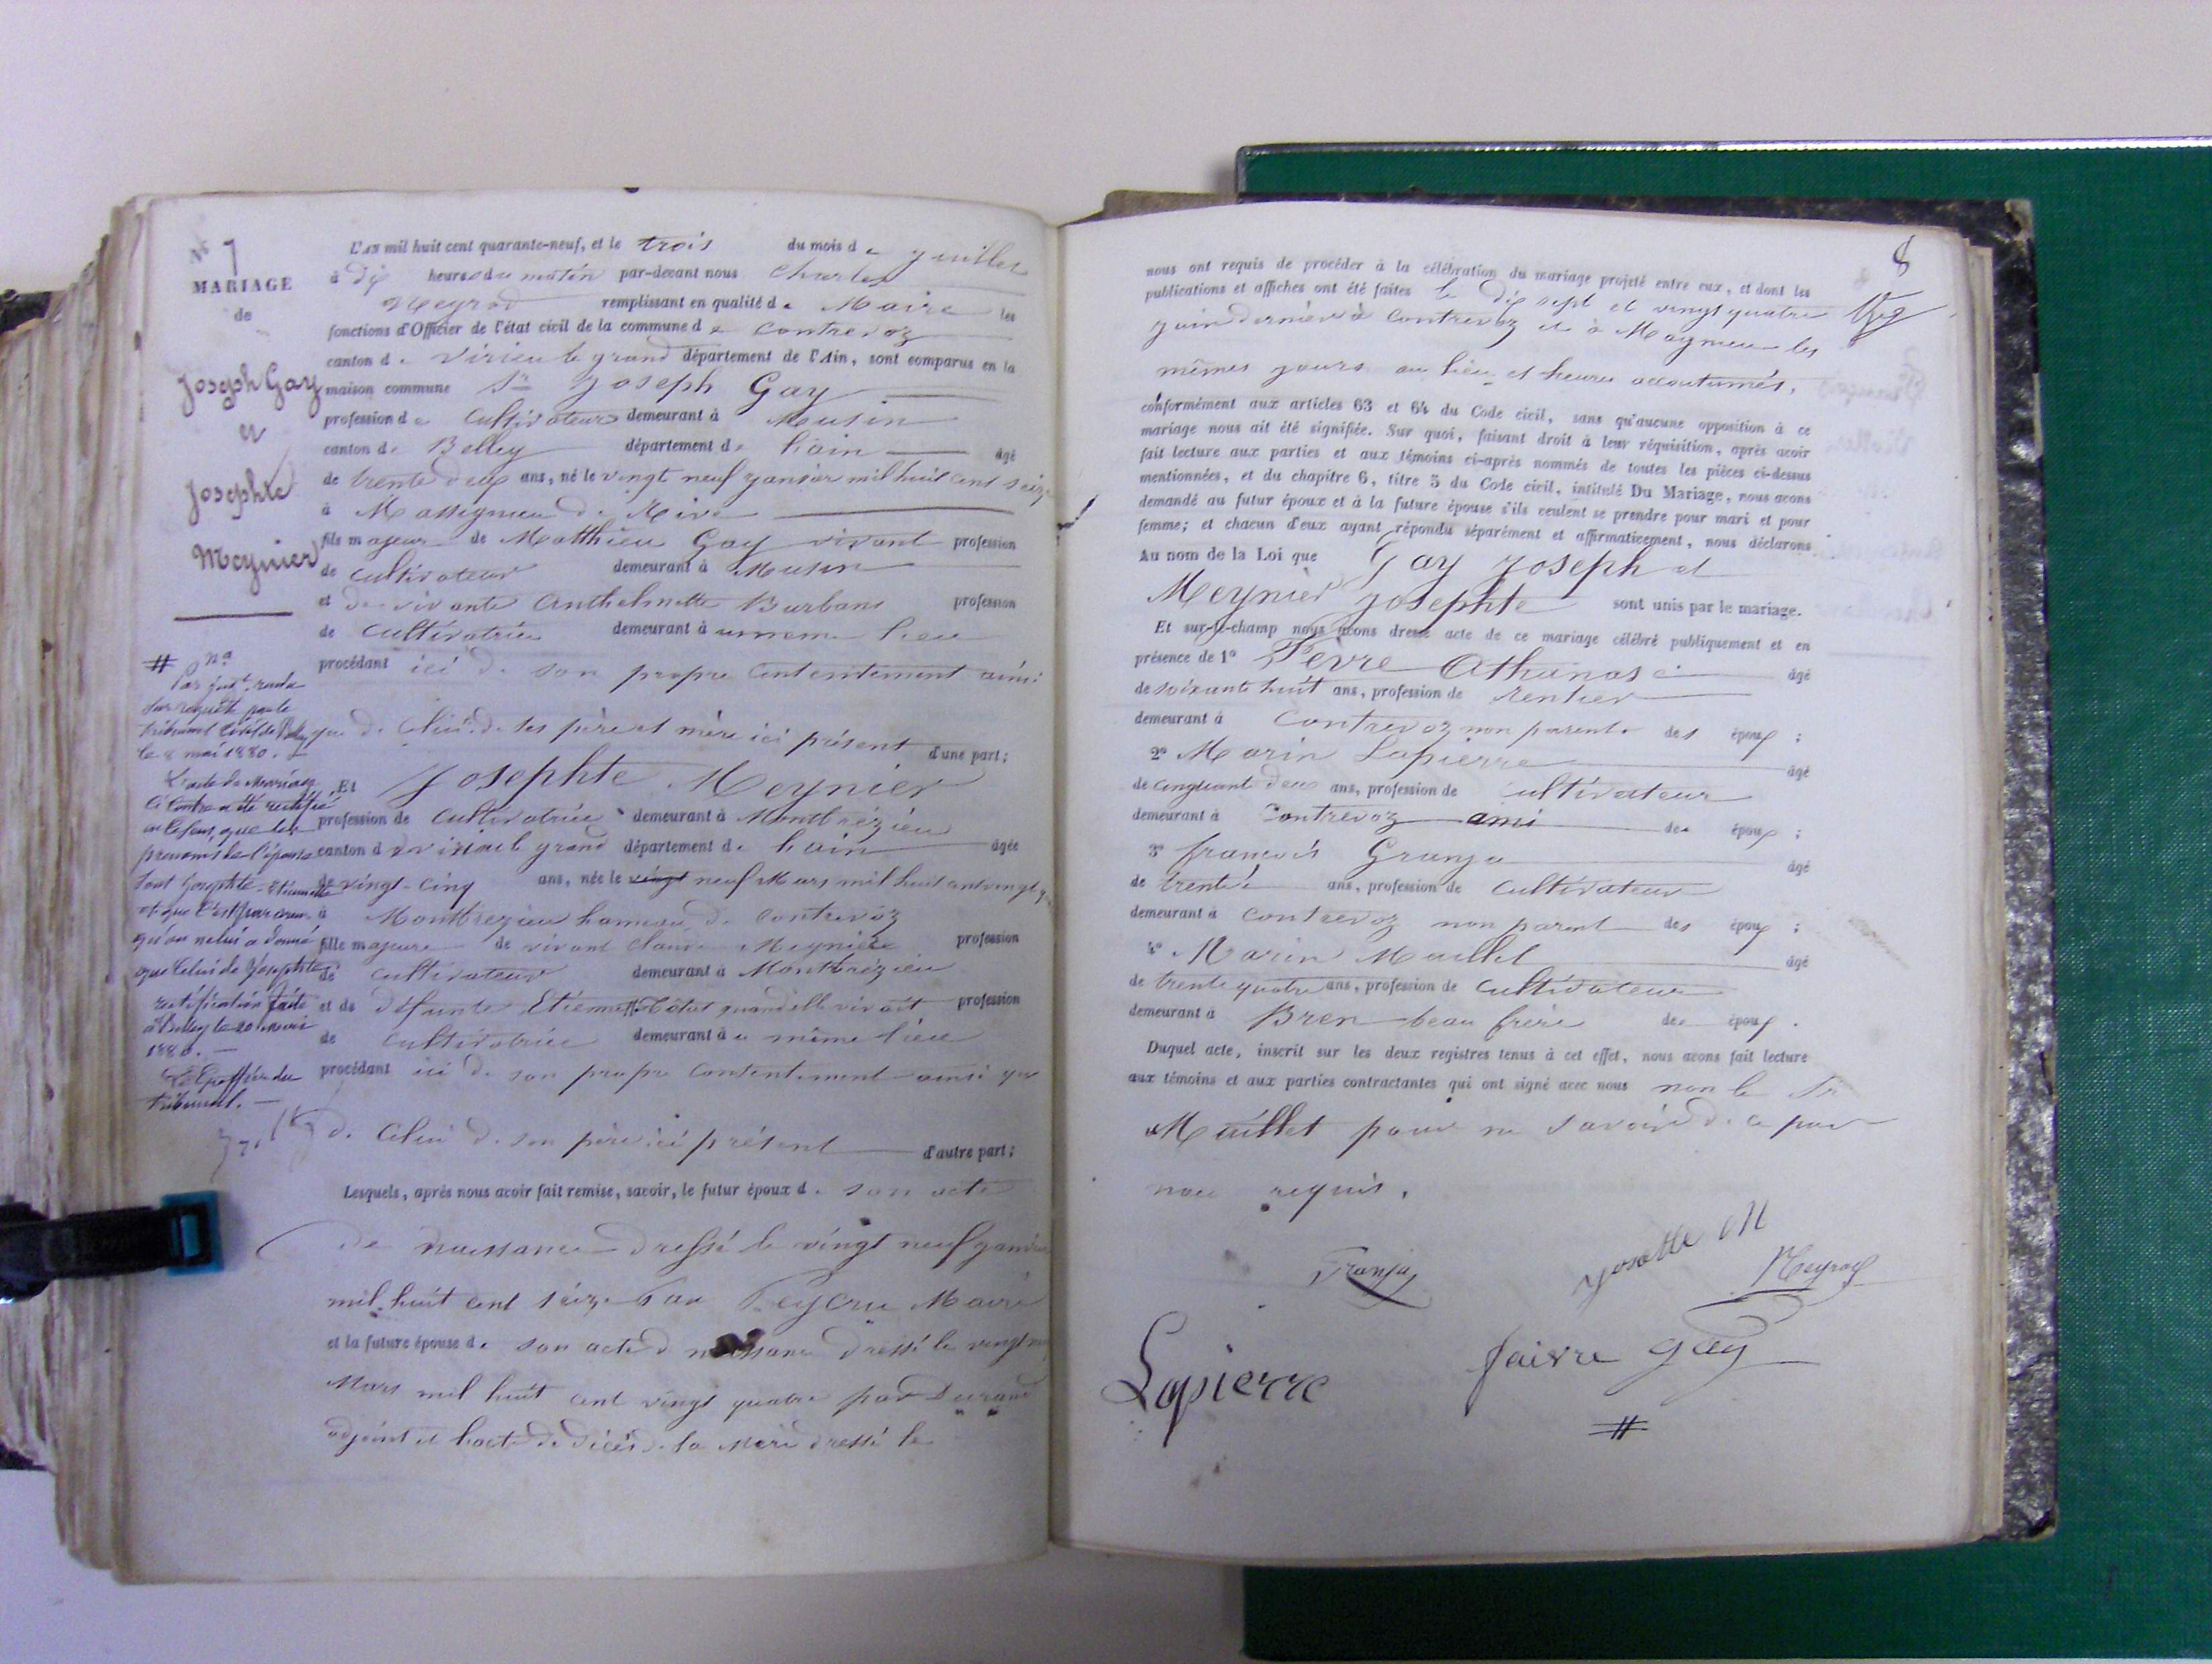 N° 7
MARIAGE
de
Joseph Gay
et
Josephte
Meynier
L'AN mil huit cent quarante-neuf, et le trois du mois de juillet
à dix heures du matin par-devant nous Charles
Meyrod remplissant en qualité de Maire les
fonctions d'Officier de l'état civil de la commune de Contrevoz
canton de Virieu le grand département de l'Ain, sont comparus en la
maison commune Sr Joseph Gay
profession de Cultivateur demeurant à Musin
canton de Belley département de l'ain âgé
de trente deux ans, né le vingt neuf janvier mil huit cent seize
à Massignieu de Rive
fils majeur de Matthieu Gay vivant profession
de cultivateur demeurant à Musin
et de vivante Anthelmette Burbans profession
de Cultivatrice demeurant à un même lieu
procédant ici de son propre consentement ainsi
que de celui de ses père et mère ici présent d'une part;
Et Josephte Meynier
profession de Cultivatrice demeurant à Montbrézieu
canton de virieu le grand département de l'ain âgée
de vingt-cinq ans, née le vingt neuf Mars mil huit cent vingt
à Montbrezieu hameau de Contrevoz
fille majeure de vivant Claude Meynier profession
de cultivateur demeurant à Montbrézieu
et de défunte Etiennette quand elle vivait profession
de Cultivatrice demeurant à même lieu
procédant ici de son propre Consentement ainsi que
de celui de son père ici présent d'autre part;
Lesquels, après nous avoir fait remise, savoir, le futur époux de son acte
de naissance dressé le vingt neuf janvier
mil huit cent seize par Peycru Maire
et la future épouse de son acte de naissance dressé le vingt
Mars mil huit cent vingt quatre par Durand
adjoint et l'acte de décès de la Mère dressé le
#
Par jugt. rendu
sur requête par le
tribunal Civil de Belley
le 8 mai 1880.
L'acte de Mariage
ci contre a été rectifié
en ce sens, que les
prénoms de l'épouse
sont Josephte-Etiennette
et que c'est par erreur
qu'on ne lui a donné
que celui de Josephte
rectification faite
à Belley le 20 mai
1880.
Le Greffier du
tribunal.
8
nous ont requis de procéder à la célébration du mariage projeté entre eux, et dont les
publications et affiches ont été faites le dix sept et vingt quatre
juin dernier à Contrevoz et à Magnieu les
mêmes jours au lieu et heures accoutumés,
conformément aux articles 63 et 64 du Code civil, sans qu'aucune opposition à ce
mariage nous ait été signifiée. Sur quoi, faisant droit à leur réquisition, après avoir
fait lecture aux parties et aux témoins ci-après nommés de toutes les pièces ci-dessus
mentionnées, et du chapitre 6, titre 5 du Code civil, intitulé Du Mariage, nous avons
demandé au futur époux et à la future épouse s'ils veulent se prendre pour mari et pour
femme; et chacun d'eux ayant répondu séparément et affirmativement, nous déclarons
Au nom de la Loi que Gay Joseph et
Meynier Josephte sont unis par le mariage.
Et sur-le-champ nous avons dressé acte de ce mariage célébré publiquement et en
présence de 1° Fèvre Athanase âgé
de soixante huit ans, profession de rentier
demeurant à Contrevoz non parent des époux ;
2° Marin Lapierre âgé
de cinquante deux ans, profession de cultivateur
demeurant à Contrevoz ami des époux ;
3° francois Granja âgé
de trente ans, profession de Cultivateur
demeurant à Contrevoz non parent des époux ;
4° Marin Maillet âgé
de trente quatre ans, profession de Cultivateur
demeurant à Bren beau frère des époux.
Duquel acte, inscrit sur les deux registres tenus à cet effet, nous avons fait lecture
aux témoins et aux parties contractantes qui ont signé avec nous non le Sr
Maillet pour ne savoir de ce par
nous requis.
Granja
Josette M
Meyrod
Lapierre
faivre
gay
#